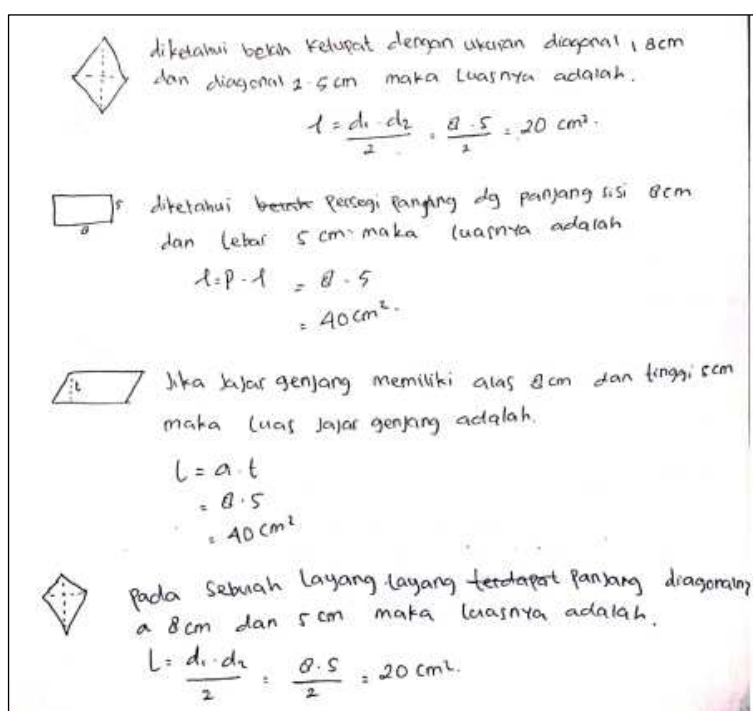 diketahui belah ketupat dengan ukuran diagonal 1 8cm
dan diagonal 2 5 cm maka Luasnya adalah.
l = d1 . d2 / 2 = 8 . 5 / 2 = 20 cm².
5
8
diketahui persegi panjang dg panjang sisi 8cm
dan lebar 5 cm maka luasnya adalah
l = p . l = 8 . 5
= 40 cm².
t
Jika Jajar genjang memiliki alas 8cm dan tinggi 5cm
maka luas Jajar genjang adalah.
L = a . t
= 8 . 5
= 40 cm²
pada sebuah Layang Layang terdapat panjang diagonalny
a 8cm dan 5 cm maka luasnya adalah.
L = d1 . d2 / 2 = 8 . 5 / 2 = 20 cm².